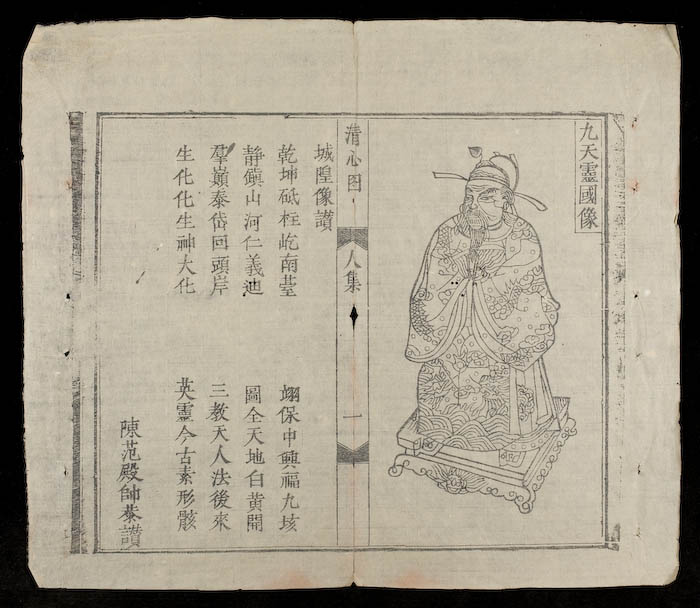 九天靈國像
清心图
人集
一
城隍像讃
乾坤砥柱屹南臺 翊保中興福九垓
靜鎭山河仁義迪 圖全天地白黄開
羣巔泰岱回頭岸 三教天人法後來
生化化生神大化 英靈今古素形骸
陳范殿帥恭讃